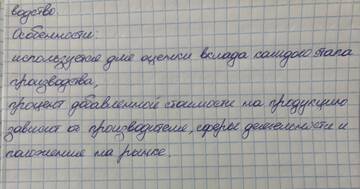 водство.
Особенности:
используется для оценки вклада каждого этапа
производства,
процент добавленной стоимости на продукцию
зависит от производителя, сферы деятельности и
положения на рынке.